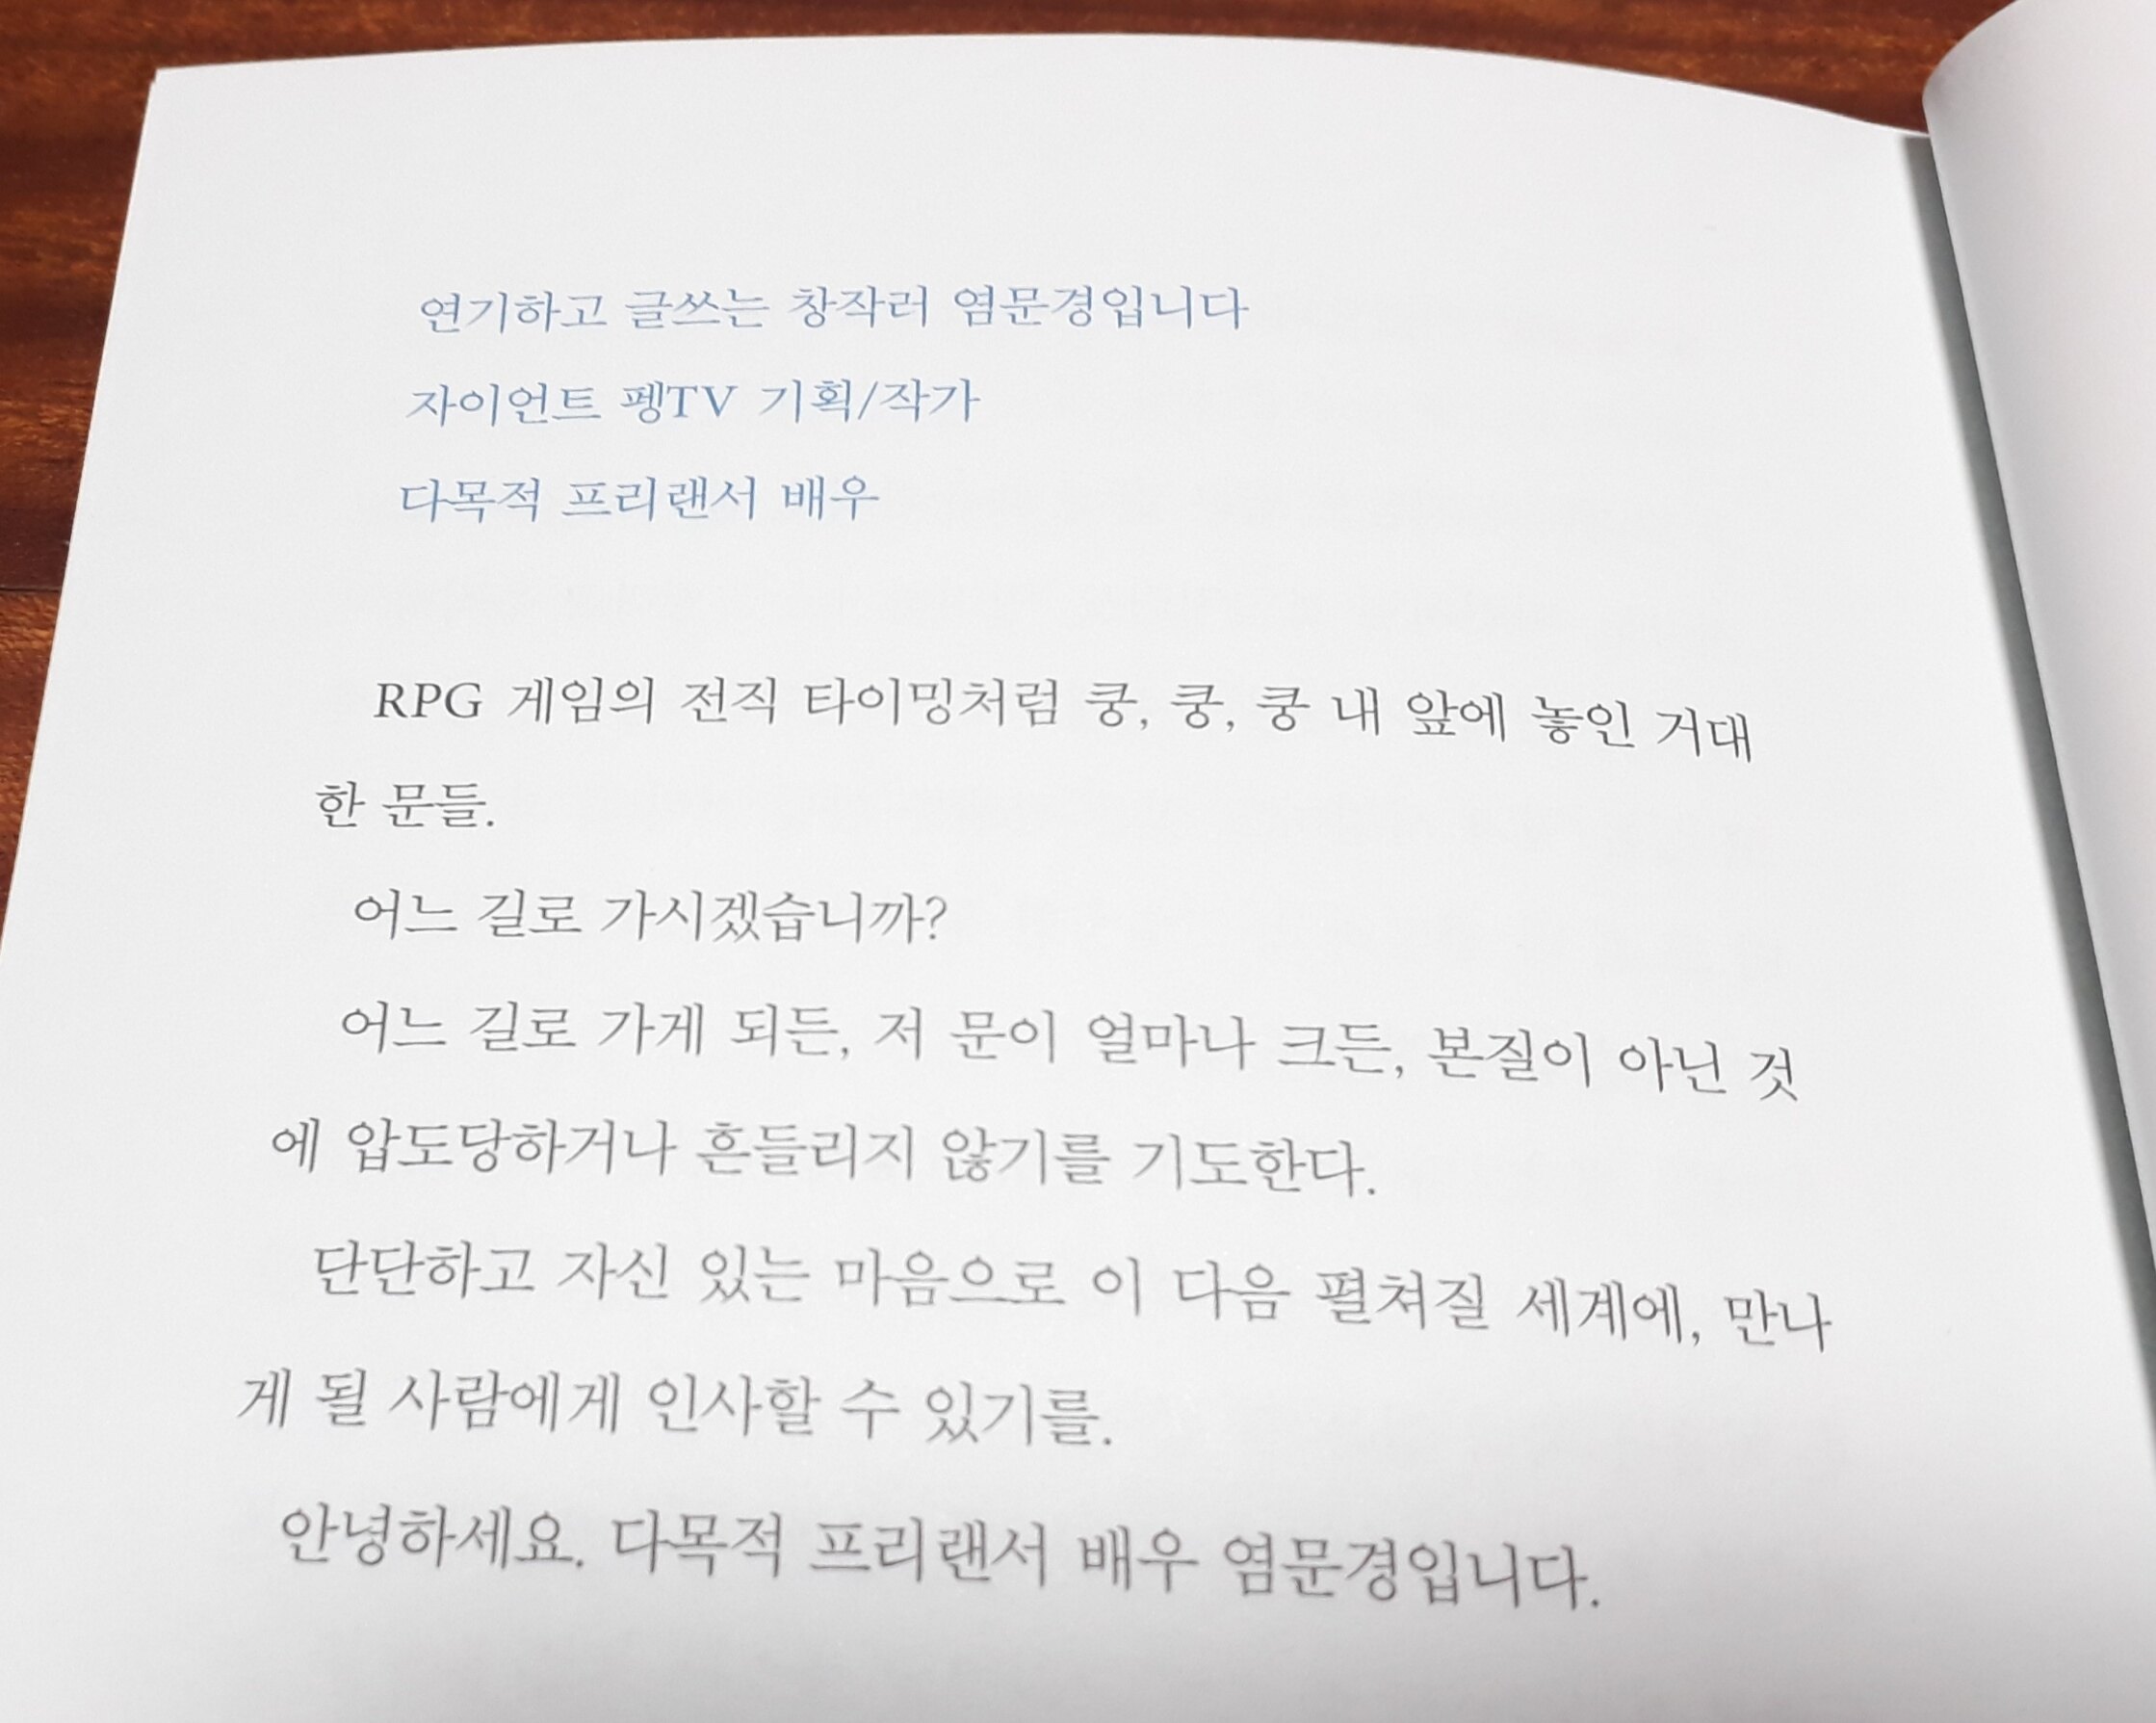 연기하고 글쓰는 창작러 염문경입니다
자이언트 펭TV 기획/작가
다목적 프리랜서 배우
RPG 게임의 전직 타이밍처럼 쿵, 쿵, 쿵 내 앞에 놓인 거대
한 문들.
어느 길로 가시겠습니까?
어느 길로 가게 되든, 저 문이 얼마나 크든, 본질이 아닌 것
에 압도당하거나 흔들리지 않기를 기도한다.
단단하고 자신 있는 마음으로 이 다음 펼쳐질 세계에, 만나
게 될 사람에게 인사할 수 있기를.
안녕하세요. 다목적 프리랜서 배우 염문경입니다.